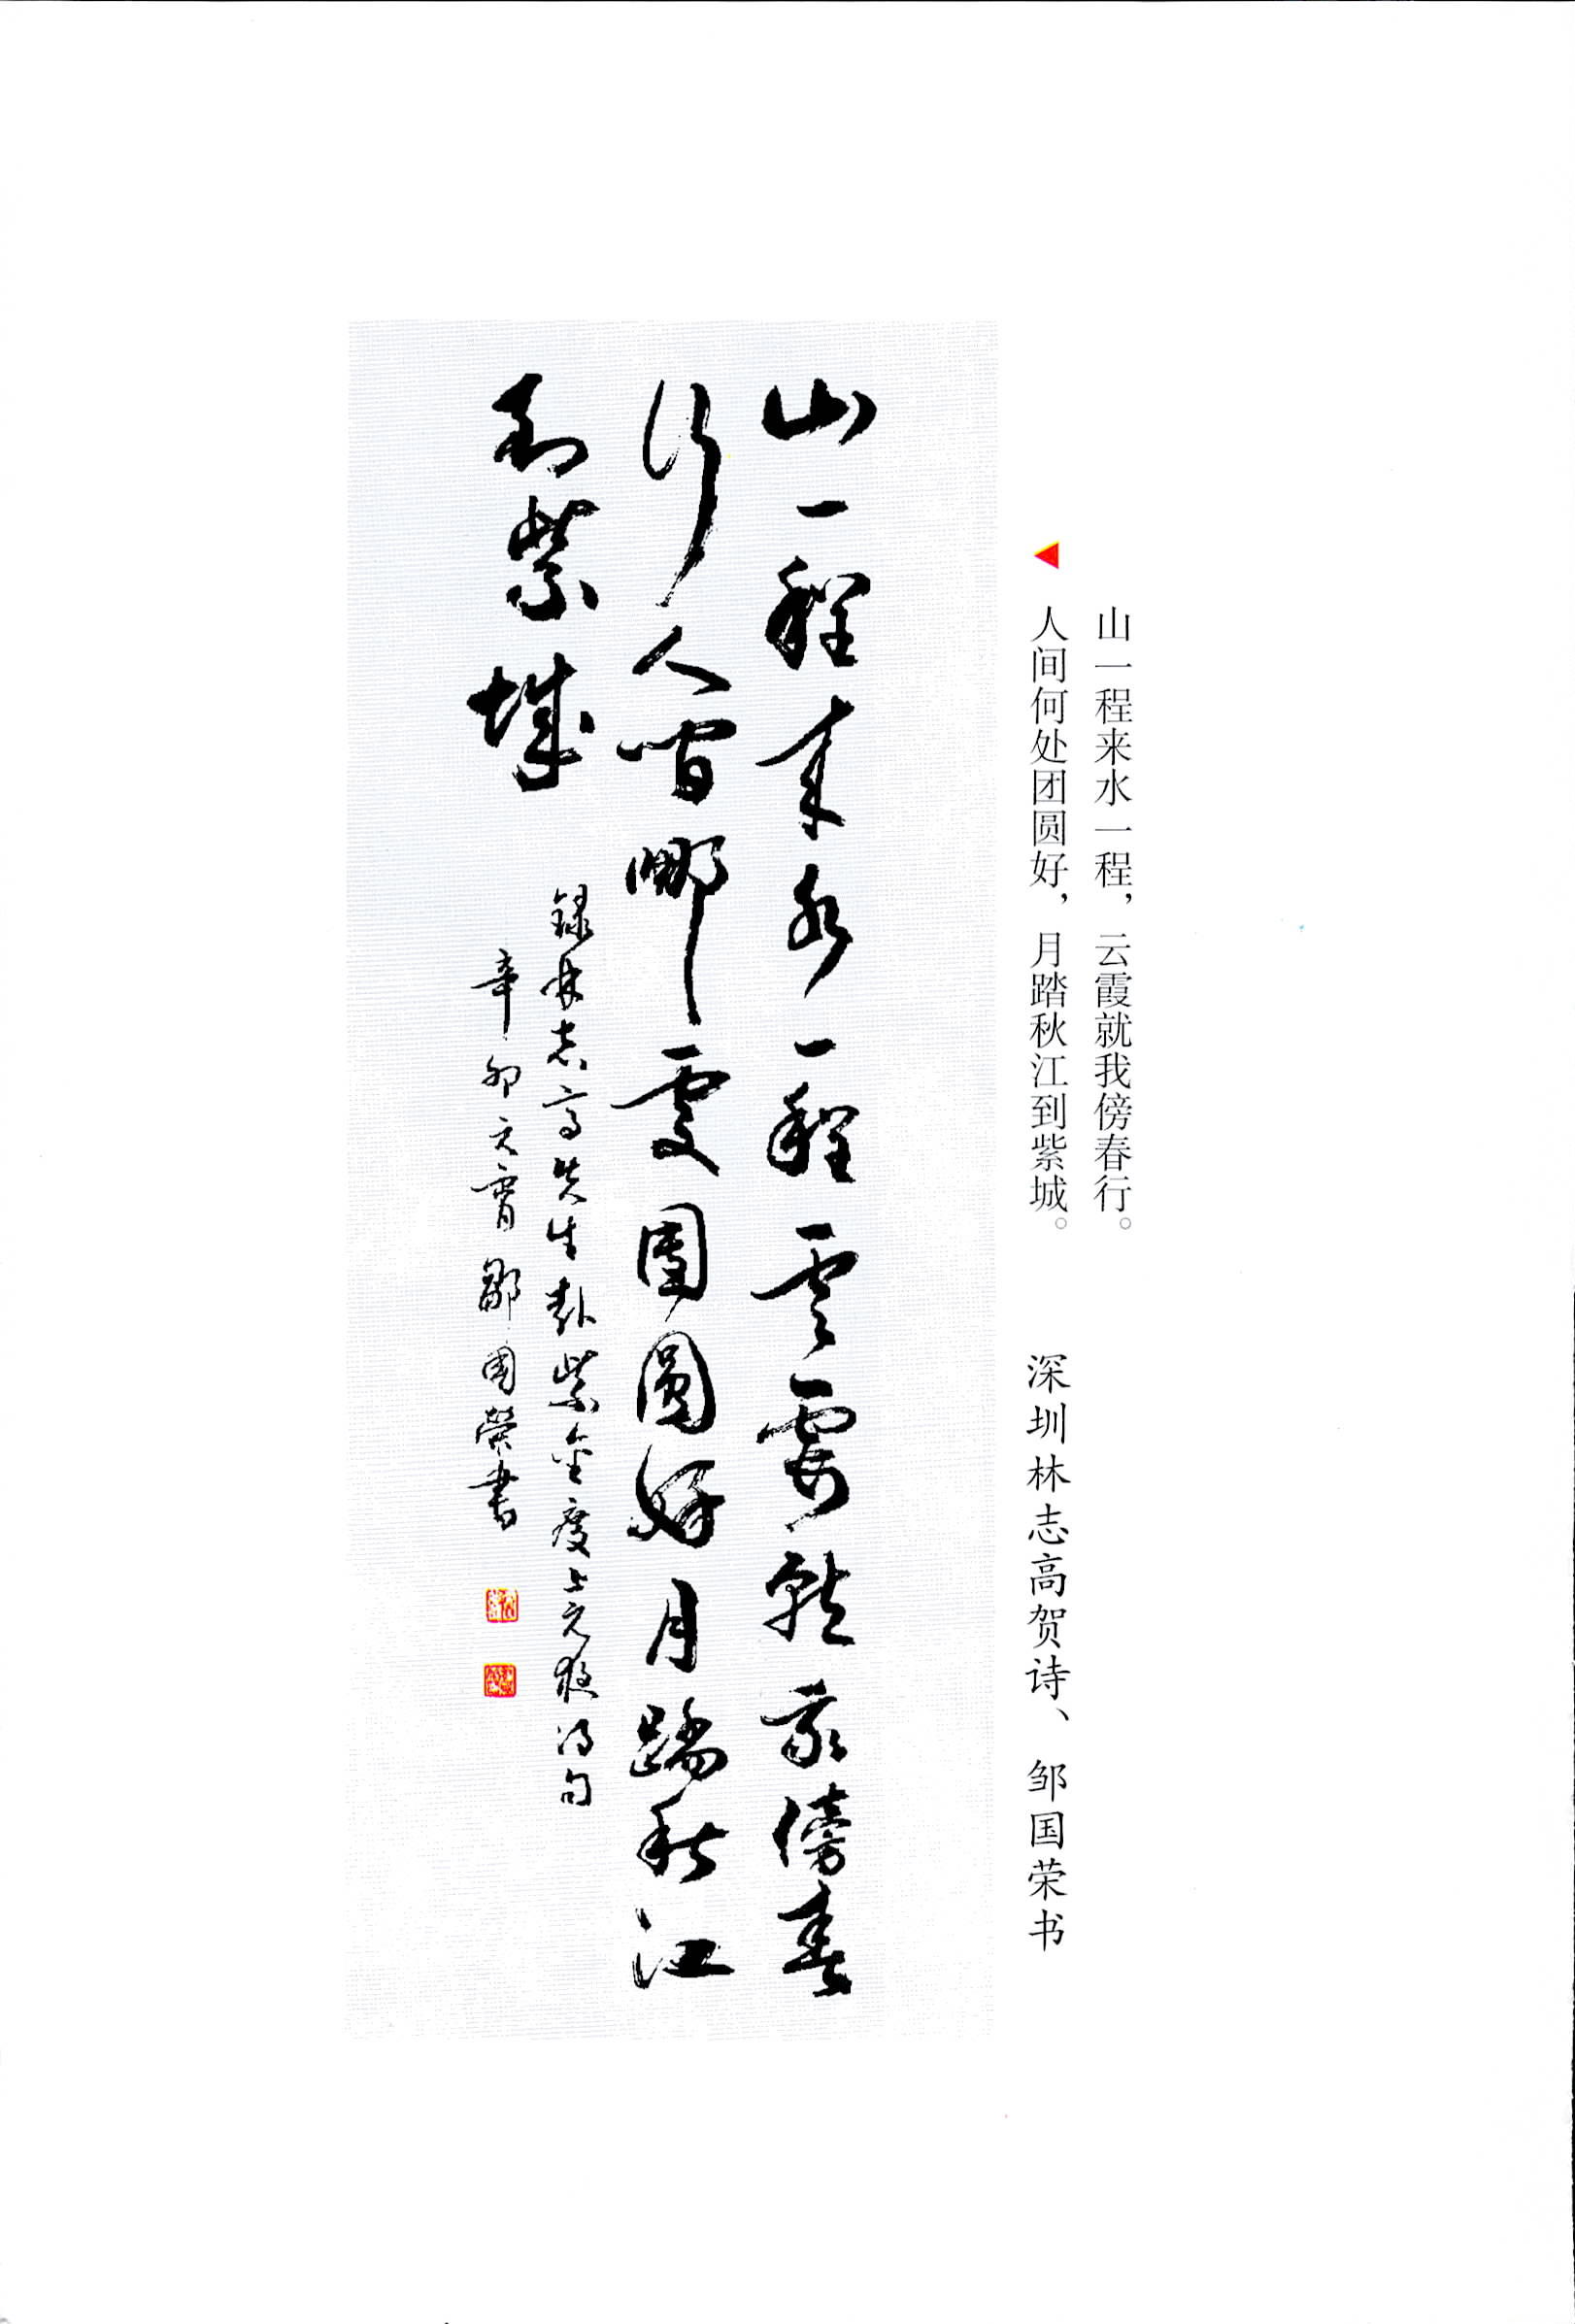 山一程来水一程，云霞就我傍春行。
人间何处团圆好，月踏秋江到紫城。
深圳林志高贺诗、邹国荣书
山一程来水一程雲霞就我傍春
行人間哪處團圓好月踏秋江
到紫城
録林志高先生赴紫金度上元夜得句
辛卯元霄鄒國榮書